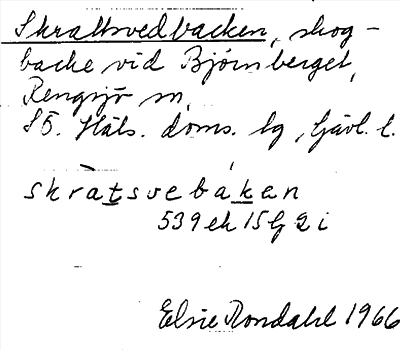 Skrattsvedbacken, skog-
backe vid Bjørnberget,
Rengsjö sn,
SÖ. Häls. doms. lg, Gävl. l.
skràtsvebákan
539ek 15G 2 i
Elsie Rondahl 1966